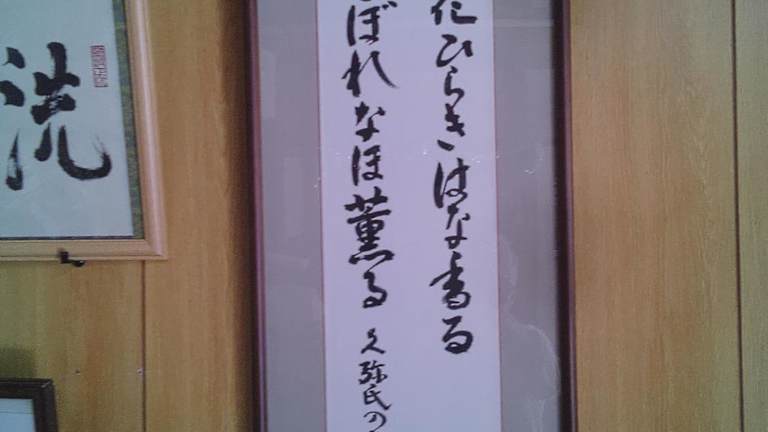 花ひらきはな香る
ぼれなほ薫る 久弥氏の
洗